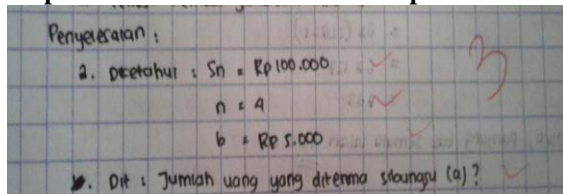 Penyelesaian :
2. Diketahui : Sn = Rp 100.000
n = 4
b = Rp 5.000
3
b. Dit : Jumlah uang yang diterima sibungsu (a) ?